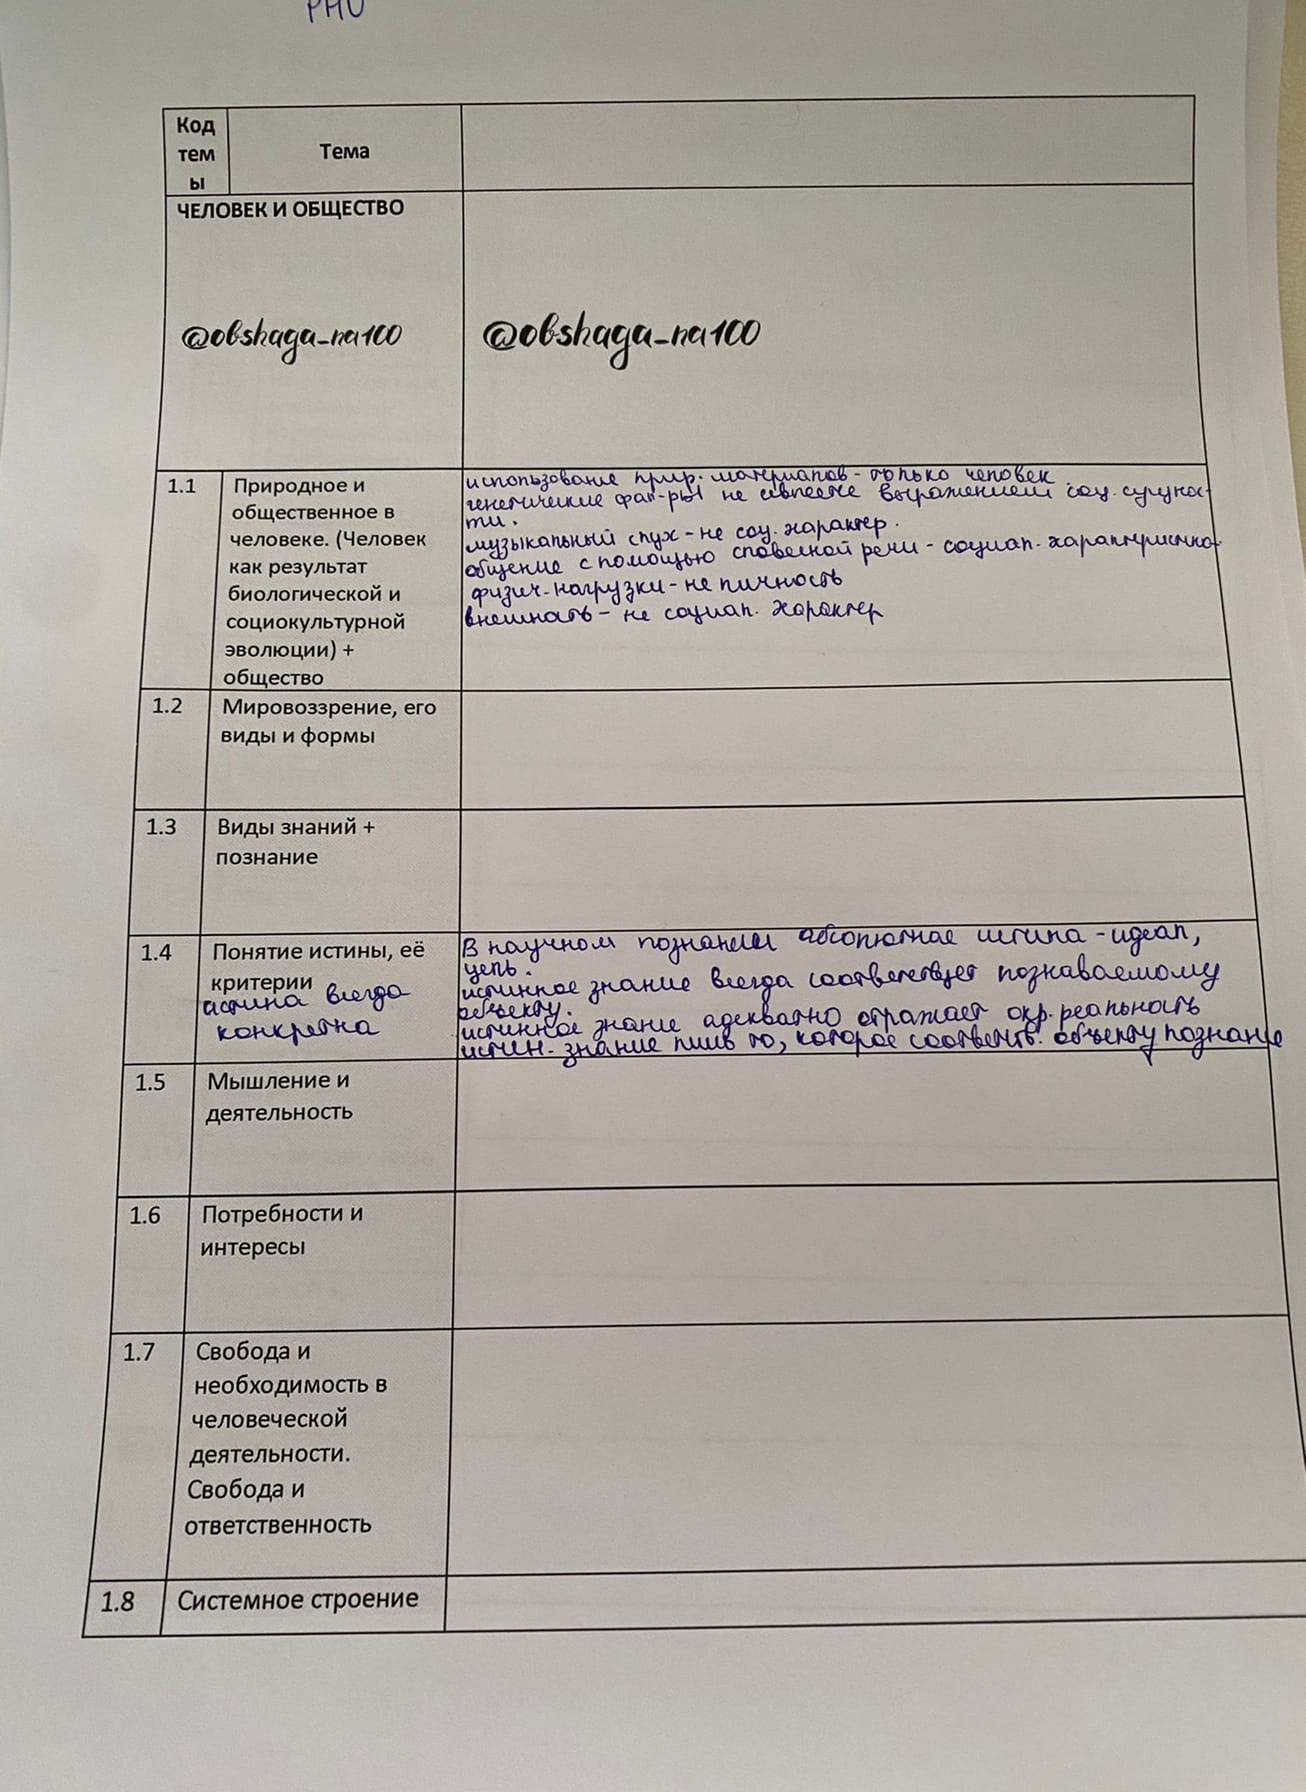 РНО
Код
тем
ы
Тема
ЧЕЛОВЕК И ОБЩЕСТВО
@obshaga_na100
@obshaga_na100
1.1
Природное и
общественное в
человеке. (Человек
как результат
биологической и
социокультурной
эволюции) +
общество
использование прир. материалов - только человек
генетические фак-ры не являются выражением соц. сущнос-
ти.
музыкальный слух - не соц. характер.
общение с помощью словесной речи - социал. характеристика
физич. нагрузки - не личность
внешность - не социал. характер
1.2
Мировоззрение, его
виды и формы
1.3
Виды знаний +
познание
1.4
Понятие истины, её
критерии
истина всегда
конкретна
В научном познании абсолютная истина - идеал,
цель.
истинное знание всегда соответствует познаваемому
объекту.
истинное знание адекватно отражает окр. реальность
истин. знание лишь то, которое соответств. объекту познание
1.5
Мышление и
деятельность
1.6
Потребности и
интересы
1.7
Свобода и
необходимость в
человеческой
деятельности.
Свобода и
ответственность
1.8
Системное строение